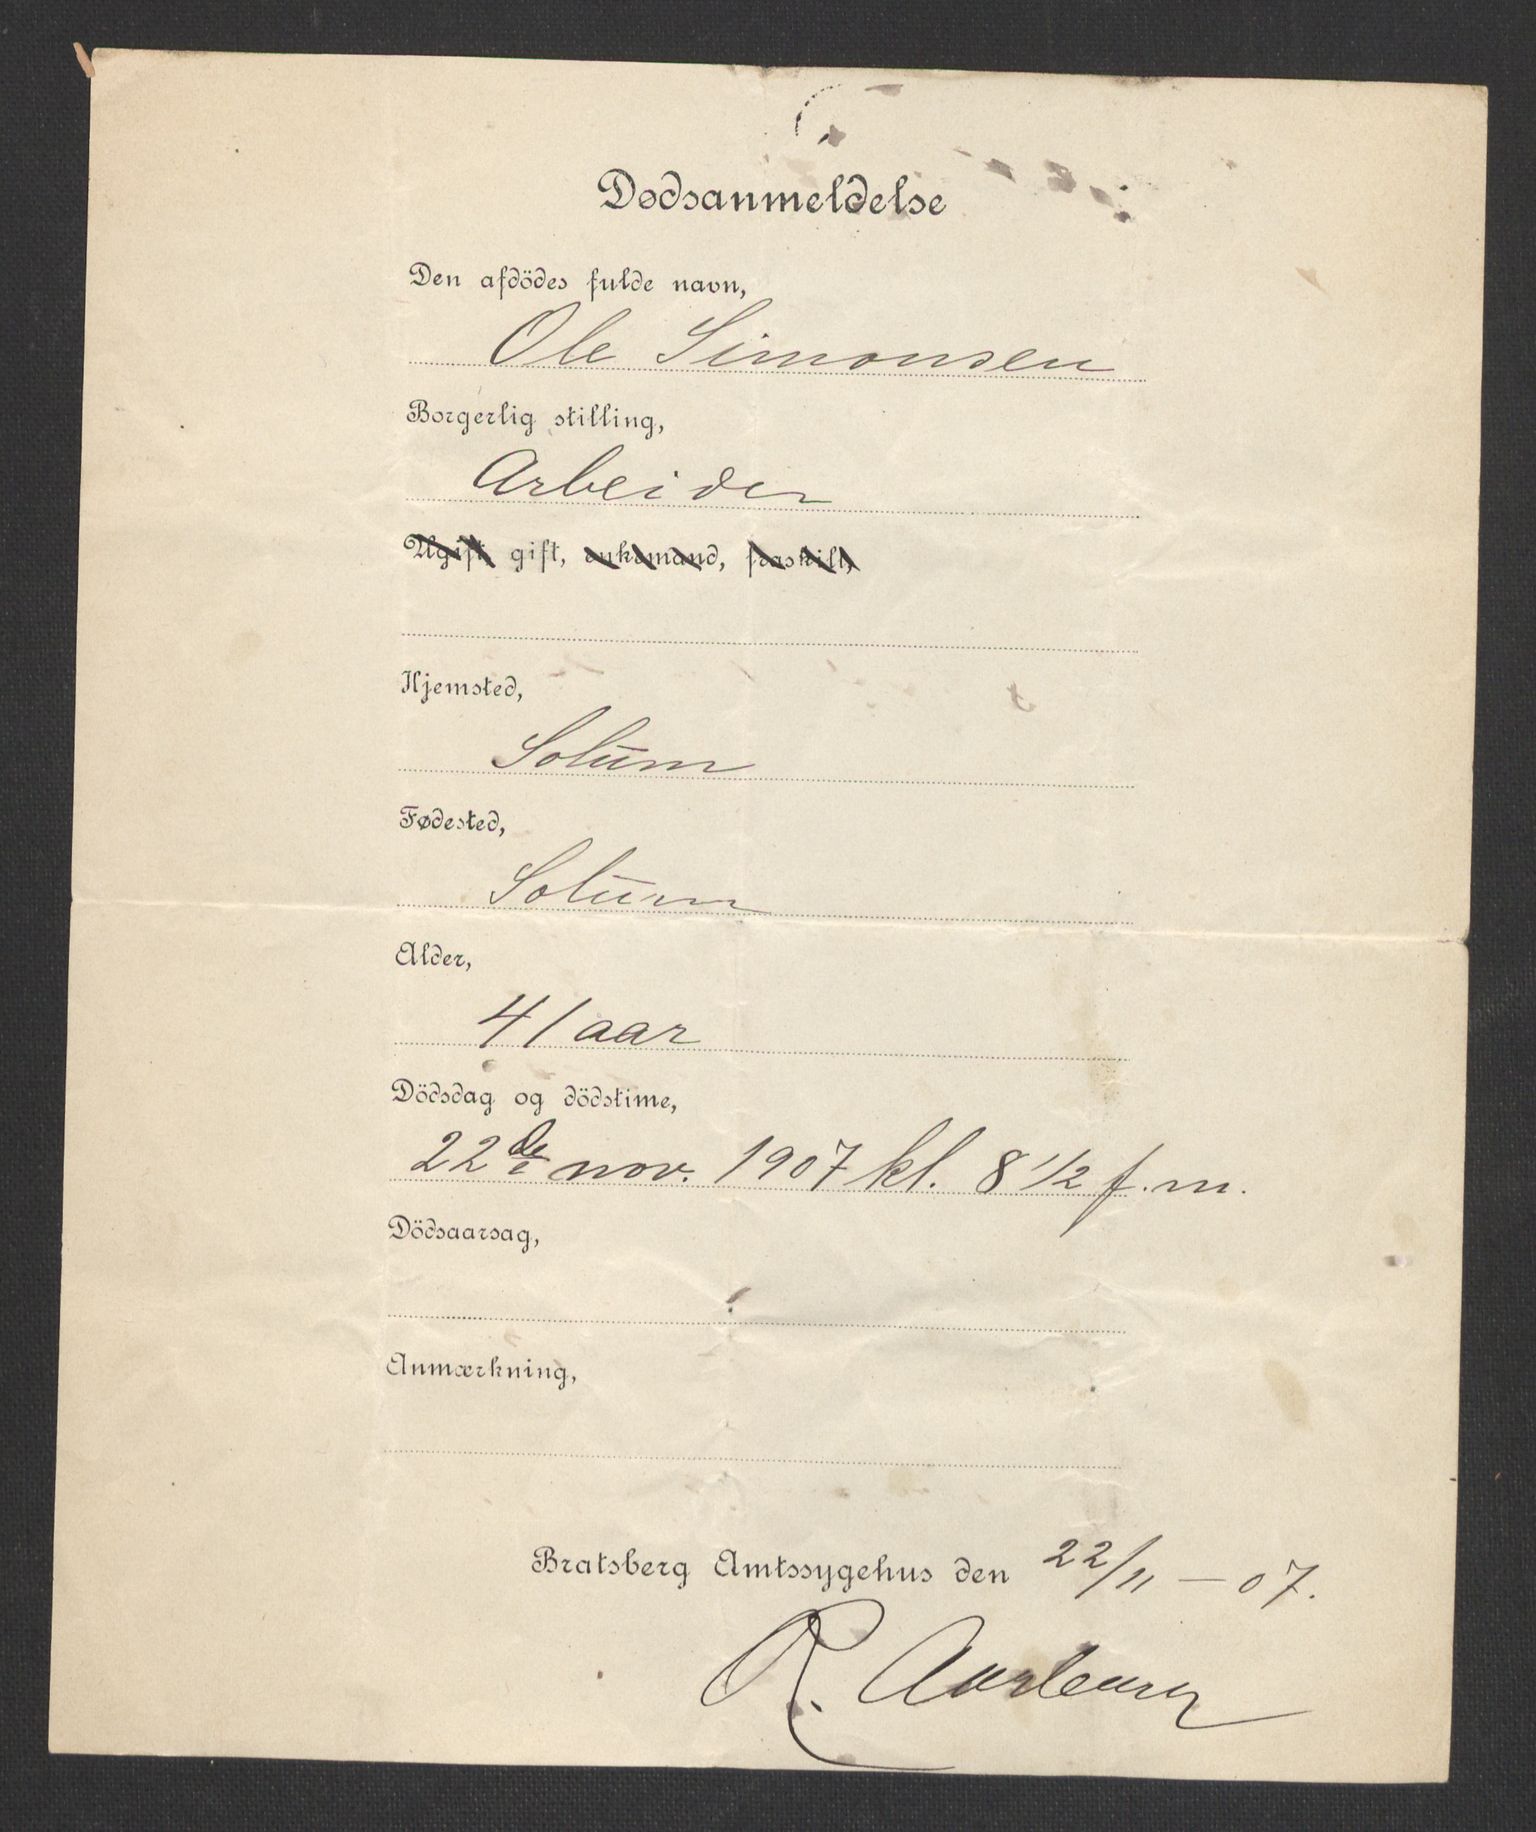 Dødsanmeldelse
Den afdödes fulde navn,
Ole Simonsen
Borgerlig stilling,
Arbeider
Ugift gift, enkemand, fraskilt,
Hjemsted,
Solum
Fødested,
Solum
Alder,
41 aar
Dödsdag og dödstime,
22de nov. 1907 kl. 8 1/2 f. m.
Dödsaarsag,
Anmærkning,
Bratsberg Amtssygehus den 22/11 — 07.
R.